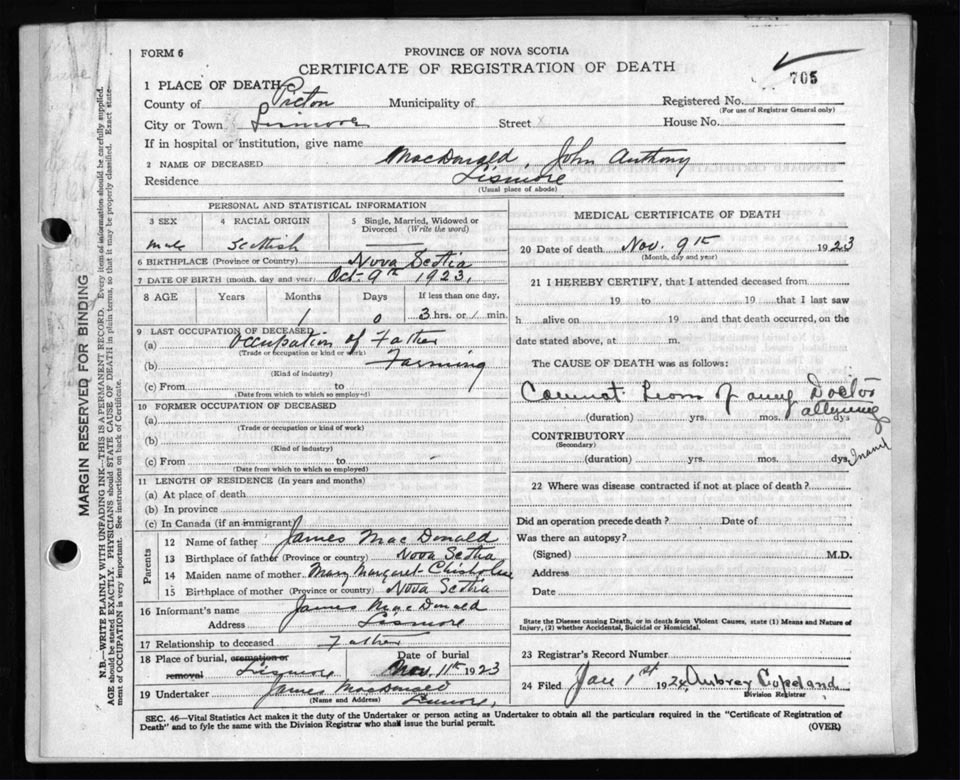 FORM 6
PROVINCE OF NOVA SCOTIA
CERTIFICATE OF REGISTRATION OF DEATH
705
1 PLACE OF DEATH
County of Pictou Municipality of Registered No.
(For use of Registrar General only)
City or Town Lismore Street x House No.
If in hospital or institution, give name
2 NAME OF DECEASED MacDonald, John Anthony
Residence Lismore
(Usual place of abode)
PERSONAL AND STATISTICAL INFORMATION
3 SEX 4 RACIAL ORIGIN 5 Single, Married, Widowed or Divorced (Write the word)
male Scottish
6 BIRTHPLACE (Province or Country) Nova Scotia
7 DATE OF BIRTH (month, day and year) Oct- 9th 1923,
8 AGE Years Months Days If less than one day,
1 0 3 hrs. or 1 min.
9 LAST OCCUPATION OF DECEASED
(a) Occupation of Father
(Trade or occupation or kind of work)
(b) Farming
(Kind of industry)
(c) From to
(Date from which to which so employed)
10 FORMER OCCUPATION OF DECEASED
(a)
(Trade or occupation or kind of work)
(b)
(Kind of industry)
(c) From to
(Date from which to which so employed)
11 LENGTH OF RESIDENCE (In years and months)
(a) At place of death
(b) In province
(c) In Canada (if an immigrant)
Parents
12 Name of father James MacDonald
13 Birthplace of father (Province or country) Nova Scotia
14 Maiden name of mother Mary Margaret Chisholm
15 Birthplace of mother (Province or country) Nova Scotia
16 Informant's name James MacDonald
Address Lismore
17 Relationship to deceased Father
18 Place of burial, cremation or removal Lismore Date of burial Nov. 11th 1923
19 Undertaker James MacDonald
(Name and Address) Lismore,
MEDICAL CERTIFICATE OF DEATH
20 Date of death Nov. 9th 1923
(Month, day and year)
21 I HEREBY CERTIFY, that I attended deceased from
19 to 19 that I last saw
h alive on 19 and that death occurred, on the
date stated above, at m.
The CAUSE OF DEATH was as follows:
Cannot learn of any Doctor
attening
(duration) yrs. mos. dys
CONTRIBUTORY
(Secondary)
(duration) yrs. mos. dys
22 Where was disease contracted if not at place of death?
Did an operation precede death? Date of
Was there an autopsy?
(Signed) M.D.
Address
Date
State the Disease causing Death, or in death from Violent Causes, state (1) Means and Nature of Injury, (2) whether Accidental, Suicidal or Homicidal.
23 Registrar's Record Number
24 Filed Jan 1st 1924 Aubrey Copeland
Division Registrar
SEC. 46—Vital Statistics Act makes it the duty of the Undertaker or person acting as Undertaker to obtain all the particulars required in the "Certificate of Registration of
Death" and to fyle the same with the Division Registrar who shall issue the burial permit.
(OVER)
MARGIN RESERVED FOR BINDING
N.B.—WRITE PLAINLY WITH UNFADING INK—THIS IS A PERMANENT RECORD. Every item of information should be carefully supplied.
AGE should be stated EXACTLY. PHYSICIANS should STATE CAUSE OF DEATH in plain terms, so that it may be properly classified. Exact state-
ment of OCCUPATION is very important. See instructions on back of Certificate.